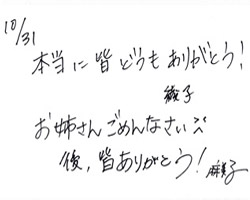 10/31
本当に皆どうもありがとう!
綾子
お姉さんごめんなさい
後,皆ありがとう!麻美子